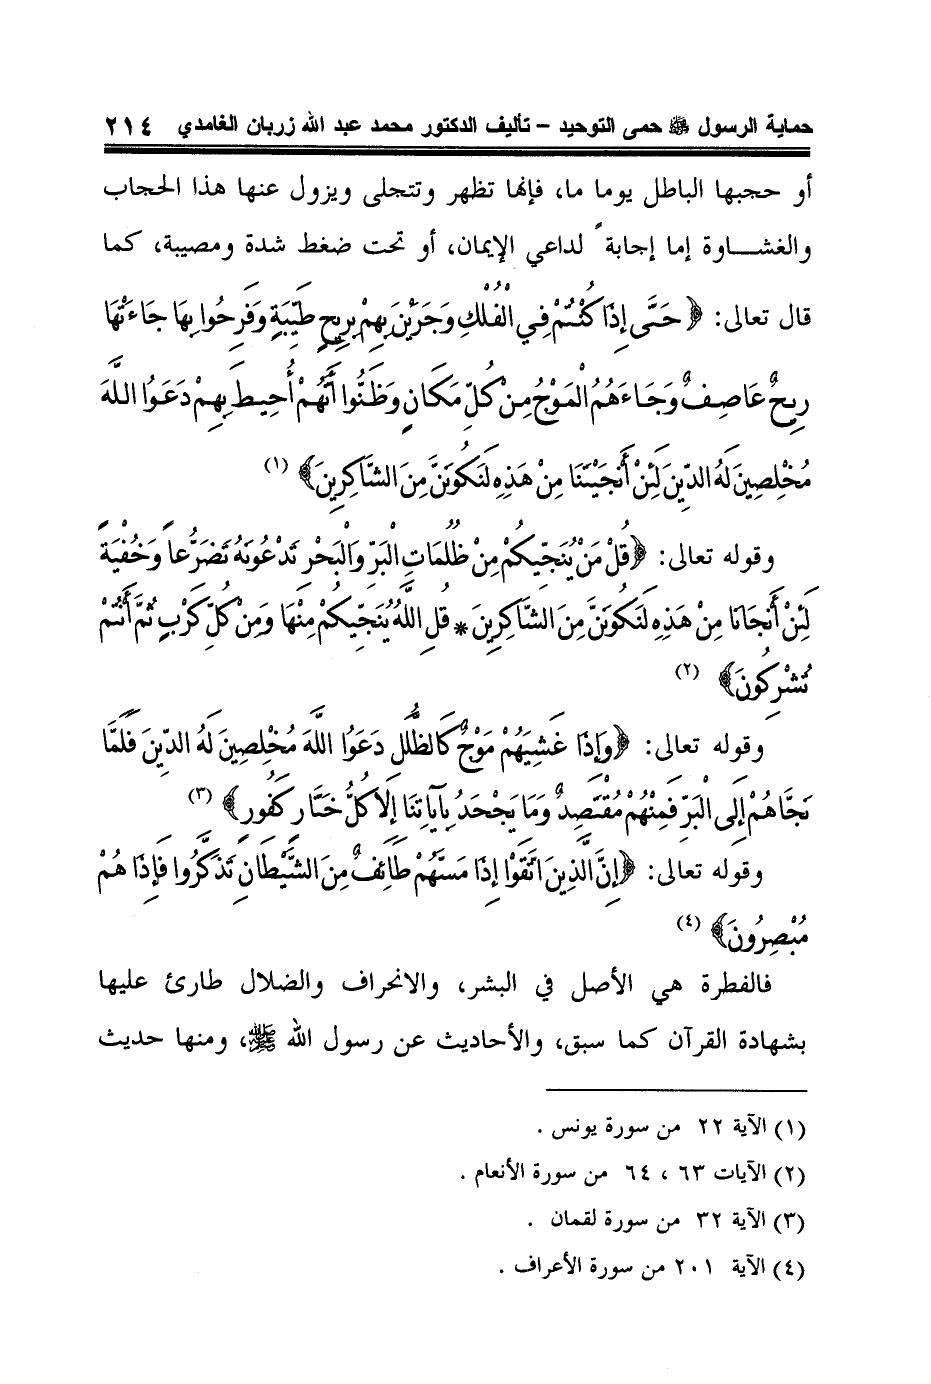 حماية الرسول ﷺ حمى التوحيد – تأليف الدكتور محمد عبد الله زربان الغامدي ٢١٤
أو حجبها الباطل يوما ما، فإنها تظهر وتتجلى ويزول عنها هذا الحجاب
والغشــاوة إما إجابة ً لداعي الإيمان، أو تحت ضغط شدة ومصيبة، كما
قال تعالى: ﴿حَتَّى إِذَا كُنْتُمْ فِي الْفُلْكِ وَجَرَيْنَ بِهِمْ بِرِيحٍ طَيِّبَةٍ وَفَرِحُوا بِهَا جَاءَتْهَا
رِيحٌ عَاصِفٌ وَجَاءَهُمُ الْمَوْجُ مِنْ كُلِّ مَكَانٍ وَظَنُّوا أَنَّهُمْ أُحِيطَ بِهِمْ دَعَوُا اللَّهَ
مُخْلِصِينَ لَهُ الدِّينَ لَئِنْ أَنْجَيْتَنَا مِنْ هَذِهِ لَنَكُونَنَّ مِنَ الشَّاكِرِينَ﴾ (١)
وقوله تعالى: ﴿قُلْ مَنْ يُنَجِّيكُمْ مِنْ ظُلُمَاتِ الْبَرِّ وَالْبَحْرِ تَدْعُونَهُ تَضَرُّعاً وَخُفْيَةً
لَئِنْ أَنْجَانَا مِنْ هَذِهِ لَنَكُونَنَّ مِنَ الشَّاكِرِينَ * قُلِ اللَّهُ يُنَجِّيكُمْ مِنْهَا وَمِنْ كُلِّ كَرْبٍ ثُمَّ أَنْتُمْ
تُشْرِكُونَ﴾ (٢)
وقوله تعالى: ﴿وَإِذَا غَشِيَهُمْ مَوْجٌ كَالظُّلَلِ دَعَوُا اللَّهَ مُخْلِصِينَ لَهُ الدِّينَ فَلَمَّا
نَجَّاهُمْ إِلَى الْبَرِّ فَمِنْهُمْ مُقْتَصِدٌ وَمَا يَجْحَدُ بِآيَاتِنَا إِلَّا كُلُّ خَتَّارٍ كَفُورٍ﴾ (٣)
وقوله تعالى: ﴿إِنَّ الَّذِينَ اتَّقَوْا إِذَا مَسَّهُمْ طَائِفٌ مِنَ الشَّيْطَانِ تَذَكَّرُوا فَإِذَا هُمْ
مُبْصِرُونَ﴾ (٤)
فالفطرة هي الأصل في البشر، والانحراف والضلال طارئ عليها
بشهادة القرآن كما سبق، والأحاديث عن رسول الله ﷺ، ومنها حديث
(١) الآية ٢٢ من سورة يونس .
(٢) الآيات ٦٣ ، ٦٤ من سورة الأنعام .
(٣) الآية ٣٢ من سورة لقمان .
(٤) الآية ٢٠١ من سورة الأعراف .